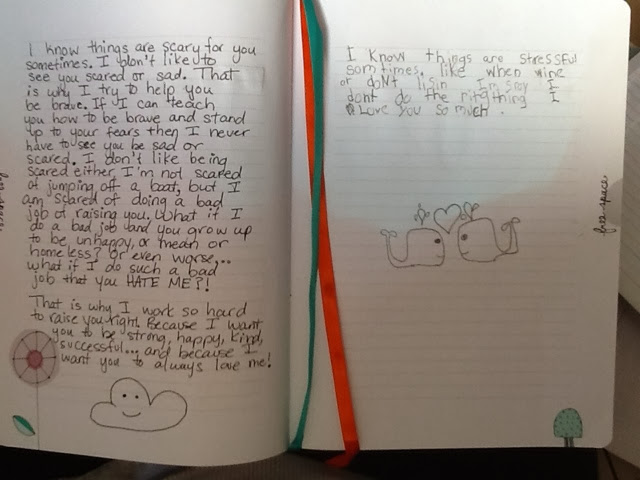 I know things are scary for you
sometimes. I don't like to
see you scared or sad. That
is why I try to help you
be brave. If I can teach
you how to be brave and stand
up to your fears then I never
have to see you be sad or
scared. I don't like being
scared either. I'm not scared
of jumping off a boat, but I
am scared of doing a bad
job of raising you. What if I
do a bad job and you grow up
to be unhappy, or mean or
homeless? Or even worse...
what if I do such a bad
job that you HATE ME?!
That is why I work so hard
to raise you right. Because I want
you to be strong, happy, kind,
successful... and because I
want you to always love me!
I know things are stressful
somtimes. like when wine
or doNt lisin I'm sory I
dont do the ritgthing I
Love you so much.
free space